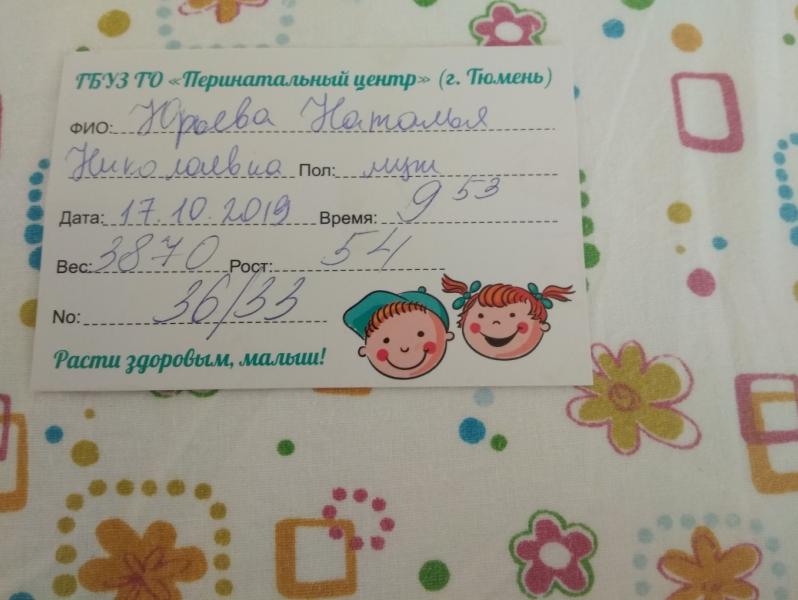 ГБУЗ ТО «Перинатальный центр» (г. Тюмень)
ФИО: Юрьева Наталья
Николаевна Пол: муж
Дата: 17.10.2019 Время: 9 53
Вес: 3870 Рост: 54
No: 36/33
Расти здоровым, малыш!